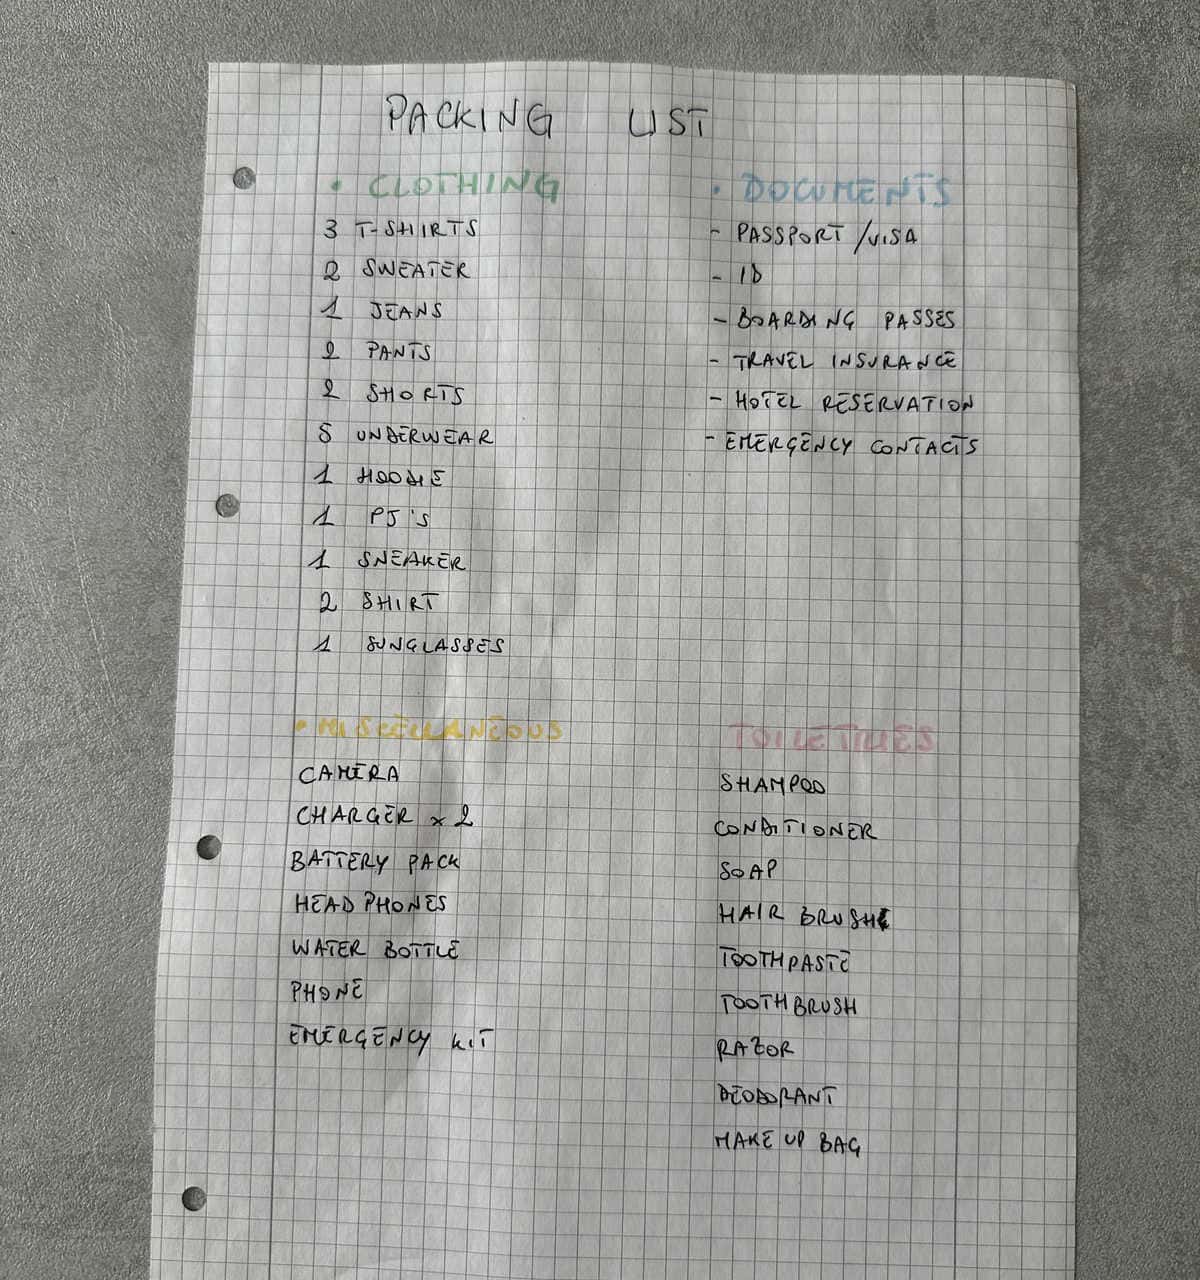 PACKING LIST
• CLOTHING
3 T-SHIRTS
2 SWEATER
1 JEANS
2 PANTS
2 SHORTS
5 UNDERWEAR
1 HOODIE
1 PJ'S
1 SNEAKER
2 SHIRT
1 SUNGLASSES
• DOCUMENTS
- PASSPORT/VISA
- ID
- BOARDING PASSES
- TRAVEL INSURANCE
- HOTEL RESERVATION
- EMERGENCY CONTACTS
• MISCELLANEOUS
CAMERA
CHARGER x 2
BATTERY PACK
HEADPHONES
WATER BOTTLE
PHONE
EMERGENCY KIT
TOILETRIES
SHAMPOO
CONDITIONER
SOAP
HAIR BRUSH
TOOTHPASTE
TOOTHBRUSH
RAZOR
DEODORANT
MAKE UP BAG